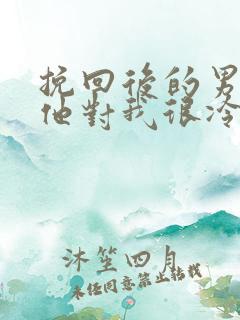 挽回後的男
他對我很冷
沐笙四月
未经同意禁止转载